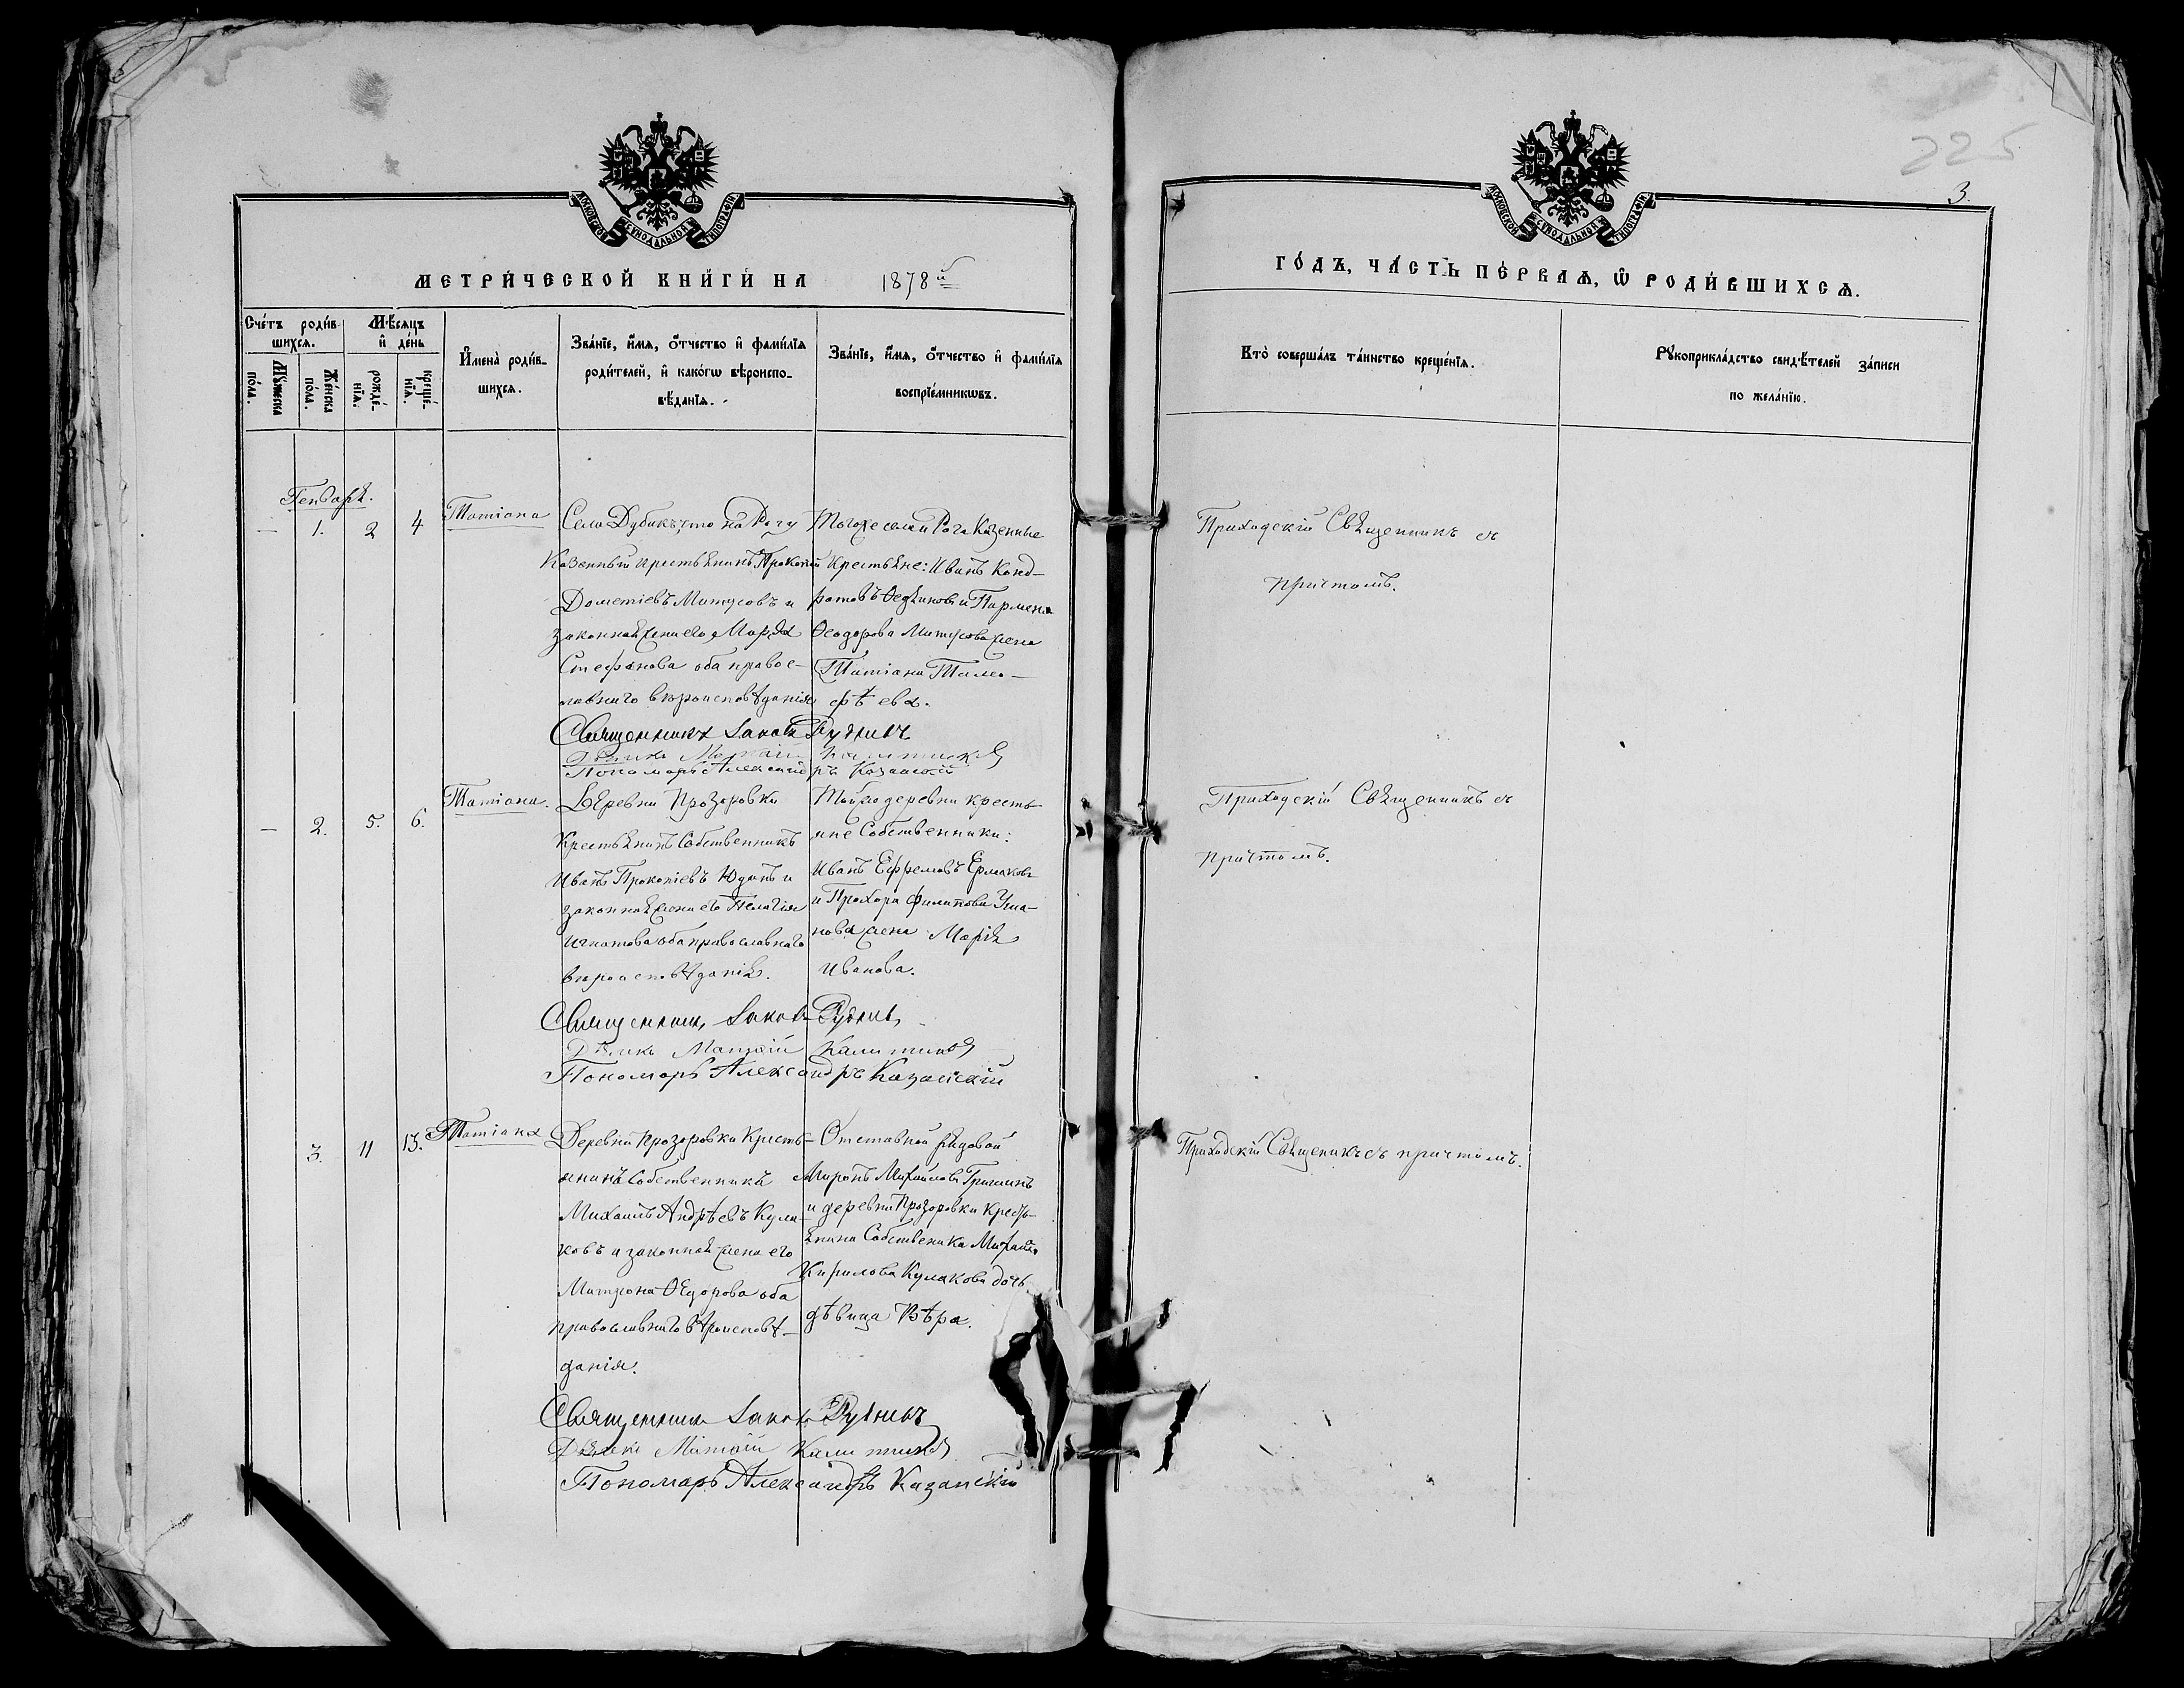 225
3.
МОСКОВСКОЙ СѴНОДАЛЬНОЙ ТИПОГРАФІИ
МОСКОВСКОЙ СѴНОДАЛЬНОЙ ТИПОГРАФІИ
МЕТРИ́ЧЕСКОЙ КНИ́ГИ НА 1878й
ГО́ДЪ, ЧА́СТЬ ПЕ́РВАѦ, Ѿ РОДИ́ВШИХСѦ.
Сче́тъ роди́вшихсѧ.
Мꙋ́жеска по́ла.
Же́нска по́ла.
Мѣ́сѧцъ и҆ де́нь
рожде́нїѧ.
креще́нїѧ.
И҆мена̀ роди́вшихсѧ.
Зва́нїе, и҆́мѧ, ѻ҆́тчество и҆ фамилїѧ
роди́телей, и҆ како́гѡ вѣроиспо-
вѣ́данїѧ.
Зва́нїе, и҆́мѧ, ѻ҆́тчество и҆ фамилїѧ
воспрїе́мникѡвъ.
Кто̀ соверша́лъ та́инство креще́нїѧ.
Рꙋкоприкла́дство свидѣ́телей за́писи
по жела́нїю.
Генварь.
— 1. 2 4 Татіана
Село Дубикъ, что на Рогу
Казенный крестьянинъ Прокопій
Дометіевъ Митусовъ и
законная жена его Марья
Стефанова оба право-
славнаго вѣроисповѣданія
Тогоже села Рога Казенные
крестьяне: Иванъ Конд-
ратовъ Ѳедяковъ и Пармена
Ѳеодорова Митусова жена
Татіана Тимо-
фѣева.
Приходскій Священникъ съ
причтомъ.
Священникъ Іаковъ Рудневъ
Дьякъ Матвій Калитинъ
Пономарь Александръ Казанскій
— 2. 5. 6. Татіана.
Деревни Прозоровки
Крестьянинъ Собственникъ
Иванъ Прокопіевъ Юдинъ и
законная жена его Пелагія
Игнатова оба православнаго
вѣроисповѣданія.
Тойже деревни кресть-
яне Собственники:
Иванъ Ефремовъ Ермаковъ
и Прохора Филипова Уша-
кова жена Марія
Иванова.
Приходскій Священникъ съ
причтомъ.
Священникъ Іаковъ Рудневъ
Дьякъ Матвій Калитинъ
Пономарь Александръ Казанскій
3. 11 13. Татіана
Деревни Прозоровки Кресть-
янинъ Собственникъ
Михаилъ Андрѣевъ Кула-
ковъ и законная жена его
Матрона Ѳедорова оба
православнаго вѣроисповѣ-
данія.
Отставной рядовой
Миронъ Михайловъ Гришинъ
и деревни Прозоровки кресть-
янина Собственика Михаила
Кирилова Кулакова дочь
дѣвица Вѣра.
Приходскій Священикъ съ причтомъ.
Священникъ Іаковъ Рудневъ
Дьякъ Матвій Калитинъ
Пономарь Александръ Казанскій